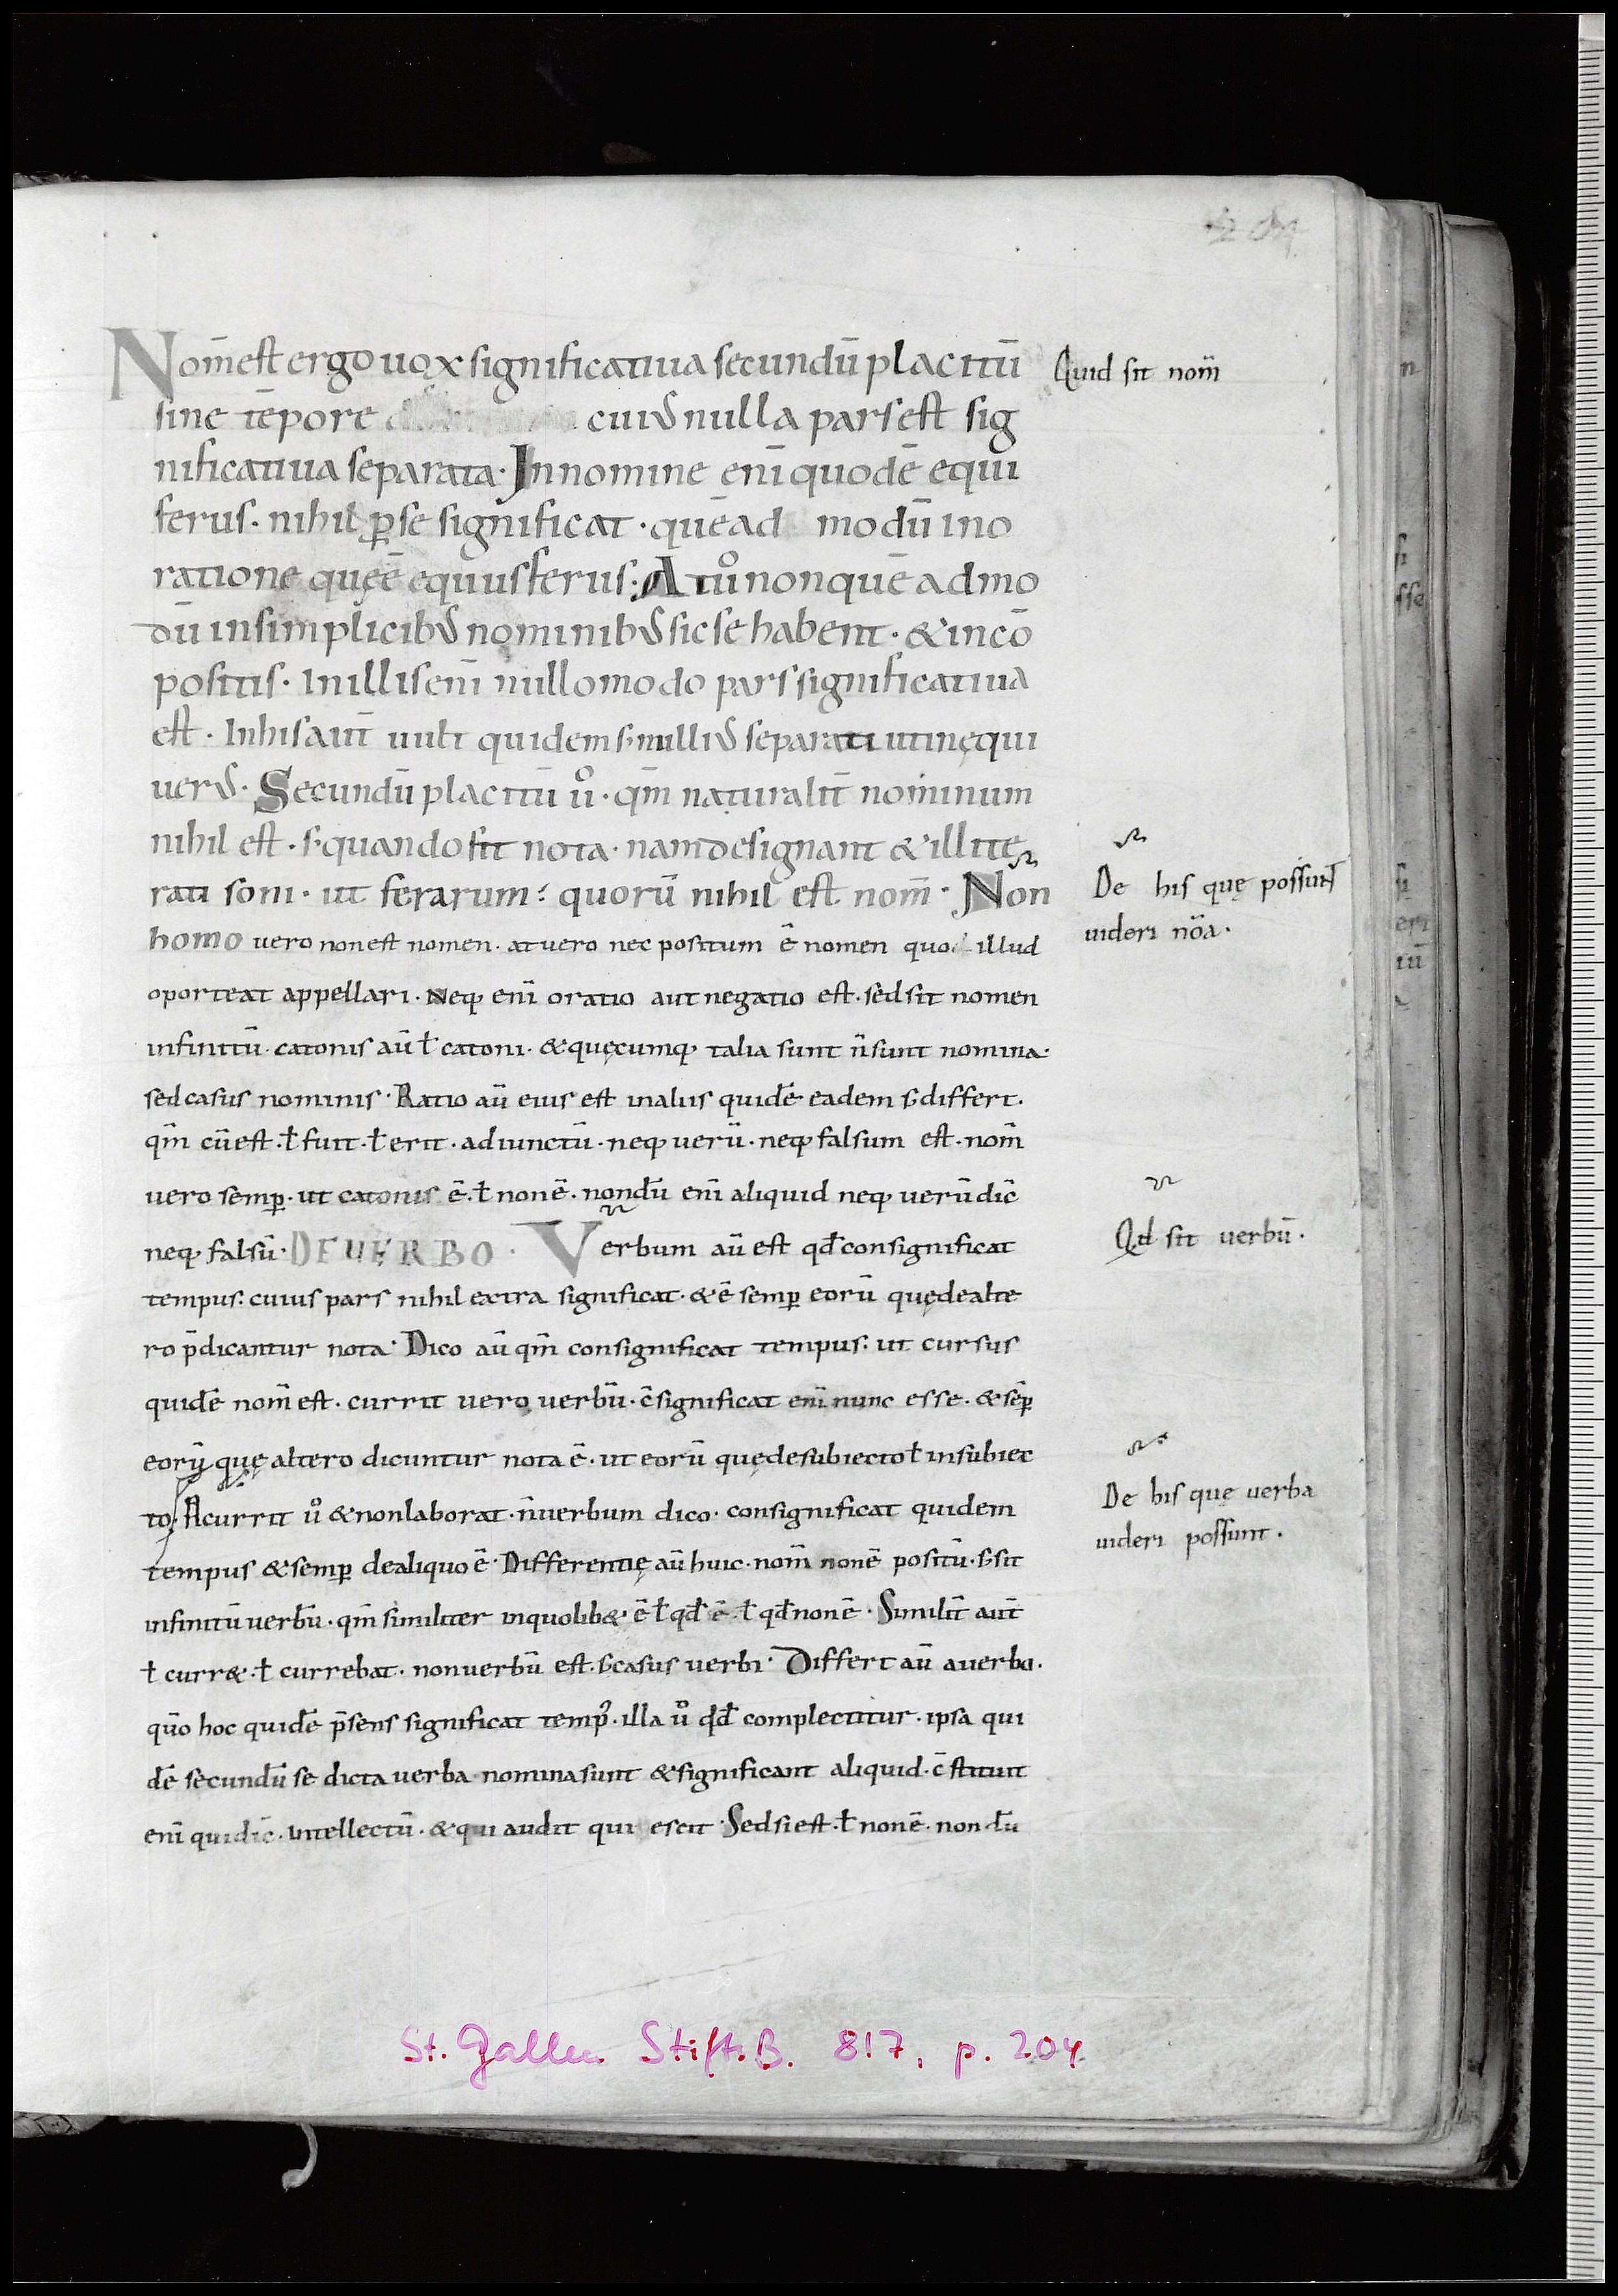 204
Nom̄ est ergo uox significatiua secundū placitū
Quid sit nom̄
sine tēpore cui᾽ nulla pars est sig
nificatiua separata· In nomine eni̅ quod ē equi
ferus· nihil ꝑ se significat· quēad modū in o
ratione quę ē equus ferus· At ůo non quē admo
dū in simplicib᾽ nominib᾽ sic se habent· & in cō
positis· In illis eni̅ nullo modo pars significatiua
est· In his aut̄ uult quidem s; nulli᾽ separati ut in ęqui
uer᾽· Secundū placitū ů· qm̄ naturalit̄ nominum
nihil est· s; quando fit nota· nam designant & illite
rati soni· ut ferarum· quorū nihil est nom̄· Non
De his quę possunt
homo vero non est nomen· at vero nec positum ē nomen quo illud
uideri nōa·
oporteat appellari· Neq; eni̅ oratio aut negatio est· sed sit nomen
infinitū· catonis aū ł catoni· & quęcumq; talia sunt n̄ sunt nomina·
sed casus nominis· Ratio aū eius est in aliis quidē eadem s; differt·
qm̄ cū est· ł fuit· ł erit· adiunctū· neq; verū· neq; falsum est· nom̄
vero semꝑ· ut catonis ē· ł non ē· nondū eni̅ aliquid neq; verū dic̄
neq; falsū· DE UERBO· Verbum aū est qd̄ consignificat
Qd sit uerbū·
tempus· cuius pars nihil extra significat· & ē semꝑ eorū quę de alte
ro p̄dicantur nota· Dico aū qm̄ consignificat tempus· ut cursus
quidē nom̄ est· currit vero verbū· c̄significat eni̅ nunc esse· & sēꝑ
eorū quę altero dicuntur nota ē· ut eorū quę de subiecto ł in subiec
to· Ncurrit ů & non laborat· n̄ verbum dico· consignificat quidem
De his quę uerba
tempus & semꝑ de aliquo ē· Differentię aū huic· nom̄ non ē positū· s; sit
uideri possunt·
infinitū verbū· qm̄ similiter in quolib& ē ł qd̄ ē· ł qd̄ non ē· Similit̄ aut̄
ł curr&· ł currebat· non verbū est· s; casus verbi· Differt aū a verbo·
quō hoc quidē p̄sens significat temp᾽· illa ů qd̄ complectitur· ipsa qui
dē secundū se dicta verba nomina sunt & significant aliquid· c̄stituit
eni̅ qui dic̄· intellectū· & qui audit qui escit· Sed si est· ł non ē· nondū
St. Gallen Stift. B. 817, p. 204